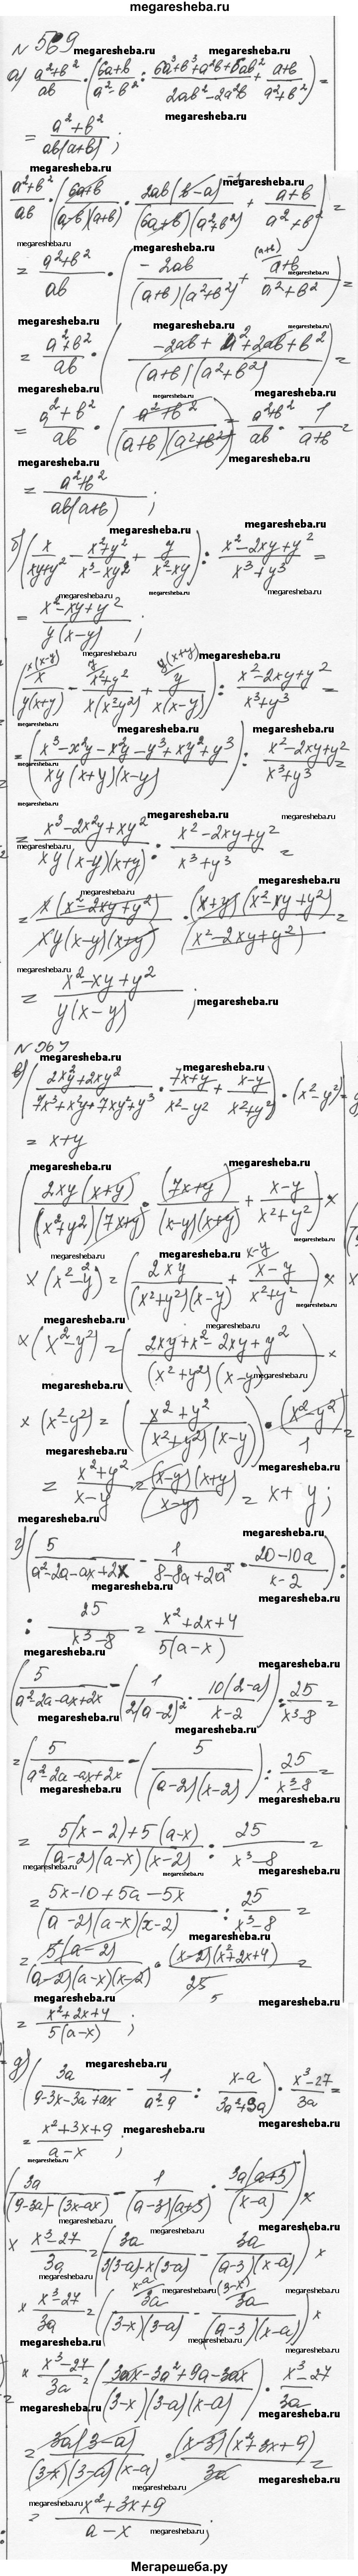 megaresheba.ru
N 569
а) (a²+b²)/(ab) · ((6a+b)/(a²-b²) : (6a³+b³+a²b+6ab²)/(2ab²-2a²b) + (a+b)/(a²+b²)) =
= (a²+b²)/(ab(a+b)) ;
(a²+b²)/(ab) · ((6a+b)/((a-b)(a+b)) · (2ab(b-a))/((6a+b)(a²+b²)) + (a+b)/(a²+b²)) =
= (a²+b²)/(ab) · ((-2ab)/((a+b)(a²+b²)) + (a+b)/(a²+b²)) =
= (a²+b²)/(ab) · ((-2ab+a²+2ab+b²)/((a+b)(a²+b²))) =
= (a²+b²)/(ab) · ((a²+b²)/((a+b)(a²+b²))) = (a²+b²)/(ab) · 1/(a+b) =
= (a²+b²)/(ab(a+b)) ;
б) (x/(xy+y²) - (x²+y²)/(x³-xy²) + y/(x²-xy)) : (x²-2xy+y²)/(x³+y³) =
= (x²-xy+y²)/(y(x-y)) ;
(x/(y(x+y)) - (x²+y²)/(x(x²-y²)) + y/(x(x-y))) : (x²-2xy+y²)/(x³+y³) =
= ((x³-x²y-x²y-y³+xy²+y³)/(xy(x+y)(x-y))) : (x²-2xy+y²)/(x³+y³) =
= (x³-2x²y+xy²)/(xy(x-y)(x+y)) : (x²-2xy+y²)/(x³+y³) =
= (x(x²-2xy+y²))/(xy(x-y)(x+y)) · ((x+y)(x²-xy+y²))/((x²-2xy+y²)) =
= (x²-xy+y²)/(y(x-y)) ;
N 569
в) ((2x²y+2xy²)/(7x³+x²y+7xy²+y³) · (7x+y)/(x²-y²) + (x-y)/(x²+y²)) · (x²-y²) =
= x+y
((2xy(x+y))/((x²+y²)(7x+y)) · (7x+y)/((x-y)(x+y)) + (x-y)/(x²+y²)) ×
× (x²-y²) = ((2xy)/((x²+y²)(x-y)) + (x-y)/(x²+y²)) ×
× (x²-y²) = ((2xy+x²-2xy+y²)/((x²+y²)(x-y))) ×
× (x²-y²) = ((x²+y²)/((x²+y²)(x-y))) · (x²-y²)/1 =
= (x²+y²)/(x-y) = ((x-y)(x+y))/(x-y) = x+y ;
г) (5/(a²-2a-ax+2x) - 1/(8-8a+2a²) · (20-10a)/(x-2)) :
: 25/(x³-8) = (x²+2x+4)/(5(a-x))
(5/(a²-2a-ax+2x) - (1/(2(a-2)²) · (10(2-a))/(x-2)) : 25/(x³-8) =
= (5/(a²-2a-ax+2x) - (5/((a-2)(x-2))) : 25/(x³-8) =
= (5(x-2)+5(a-x))/((a-2)(a-x)(x-2)) : 25/(x³-8) =
= (5x-10+5a-5x)/((a-2)(a-x)(x-2)) : 25/(x³-8) =
= (5(a-2))/((a-2)(a-x)(x-2)) · ((x-2)(x²+2x+4))/25 =
= (x²+2x+4)/(5(a-x)) ;
д) (3a/(9-3x-3a+ax) - 1/(a²-9) : (x-a)/(3a²+9a)) · (x³-27)/(3a) =
= (x²+3x+9)/(a-x) ;
(3a/((9-3a)-(3x-ax)) - 1/((a-3)(a+3)) · (3a(a+3))/(x-a)) ×
× (x³-27)/(3a) = (3a/(3(3-a)-x(3-a)) - 3a/((a-3)(x-a))) ×
× (x³-27)/(3a) = (3a/((3-x)(3-a)) - 3a/((a-3)(x-a))) ×
× (x³-27)/(3a) = ((3ax-3a²+9a-3ax)/((3-x)(3-a)(x-a))) · (x³-27)/(3a) =
= (3a(3-a))/((3-x)(3-a)(x-a)) · ((x-3)(x²+3x+9))/(3a) =
= (x²+3x+9)/(a-x) ;
Мегарешеба.ру